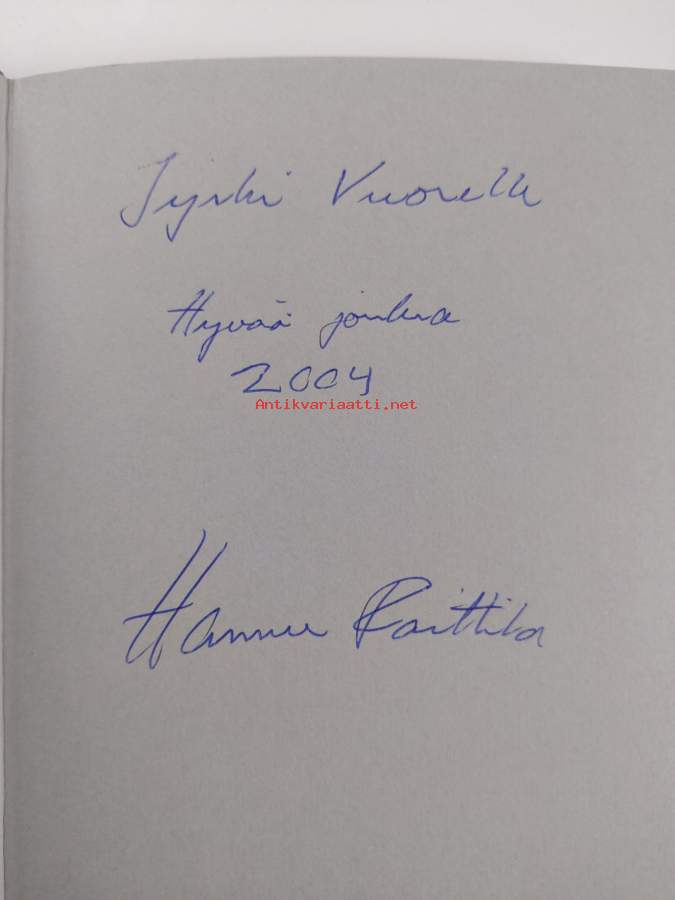 Jyrki Vuorelle
Hyvää joulua
2004
Antikvariaatti.net
Hannu Raittila